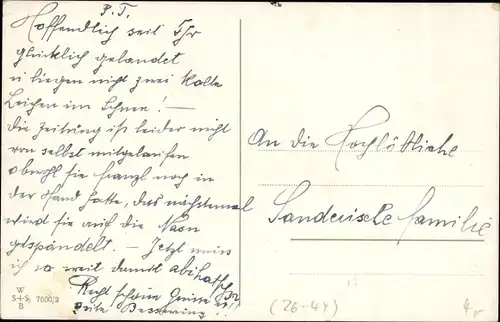 P.T.
Hoffentlich seit Ihr
glücklich gelandet
u liegen nicht zwei kalte
Leichen im Schnee! —
Die Zeitung ist leider nicht
von selbst mitgelaufen
obwohl sie Franzl noch in
der Hand hatte, das nächstemal
wird sie auf die Nasn
gspandelt. — Jetzt muss
ich so weit damit
Recht schöne Grüsse
An die Hochlöbliche
Sanderische Familie
W
S+S 7500/2
B
(26-44)